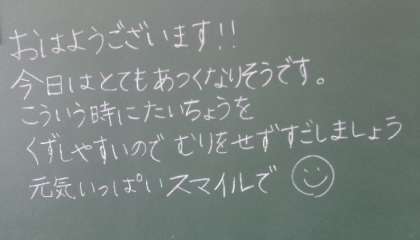 おはようございます!!
今日はとてもあつくなりそうです。
こういう時にたいちょうを
くずしやすいので むりをせずすごしましょう
元気いっぱいスマイルで